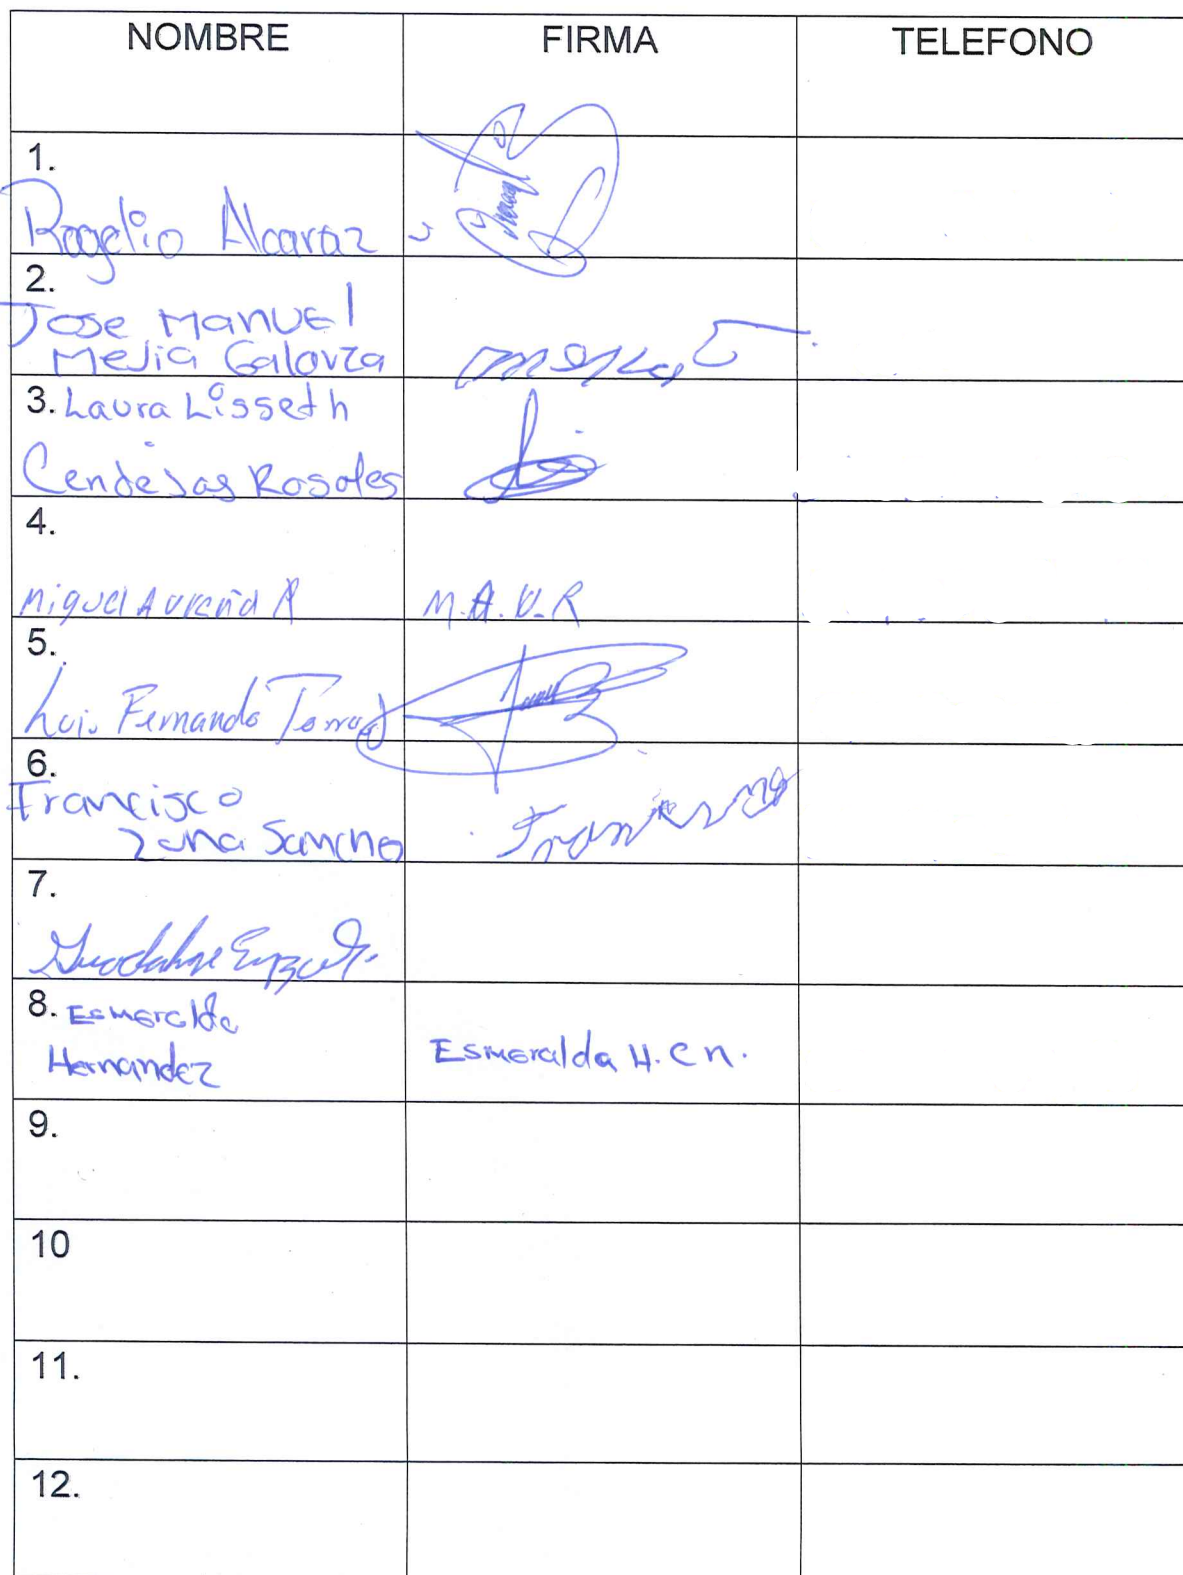 NOMBRE FIRMA TELEFONO
1.
Rogelio Alcaraz
2.
Jose Manuel
Mejia Galovza
3. Laura Lisseth
Cendejas Rosales
4.
Miguel A Ureña R M.A.U.R
5.
Luis Fernando Torres
6.
Francisco
Sancho
7.
Guadalupe
8. Esmeralda
Hernandez Esmeralda H. C n.
9.
10
11.
12.